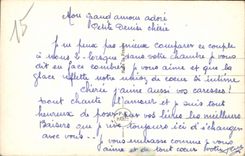 15
Mon grand amour adoré
Petite Denise chérie
Je ne peux pas mieux comparer ce couple
à nous 2 - lorsque dans votre chambre p. vous
dit au face combien p. vous aime et que les
glace reflète notre union de cœur si intime
Chérie j'aime aussi vos caresses!
tout chante l'amour et p. suis tout
heureux de poser sur vos lèvres les meilleurs
Baisers que p. rêve toujours ici d'échanger
avec vous - p. vous embrasse comme p. vous
aime et de tout cœur votre